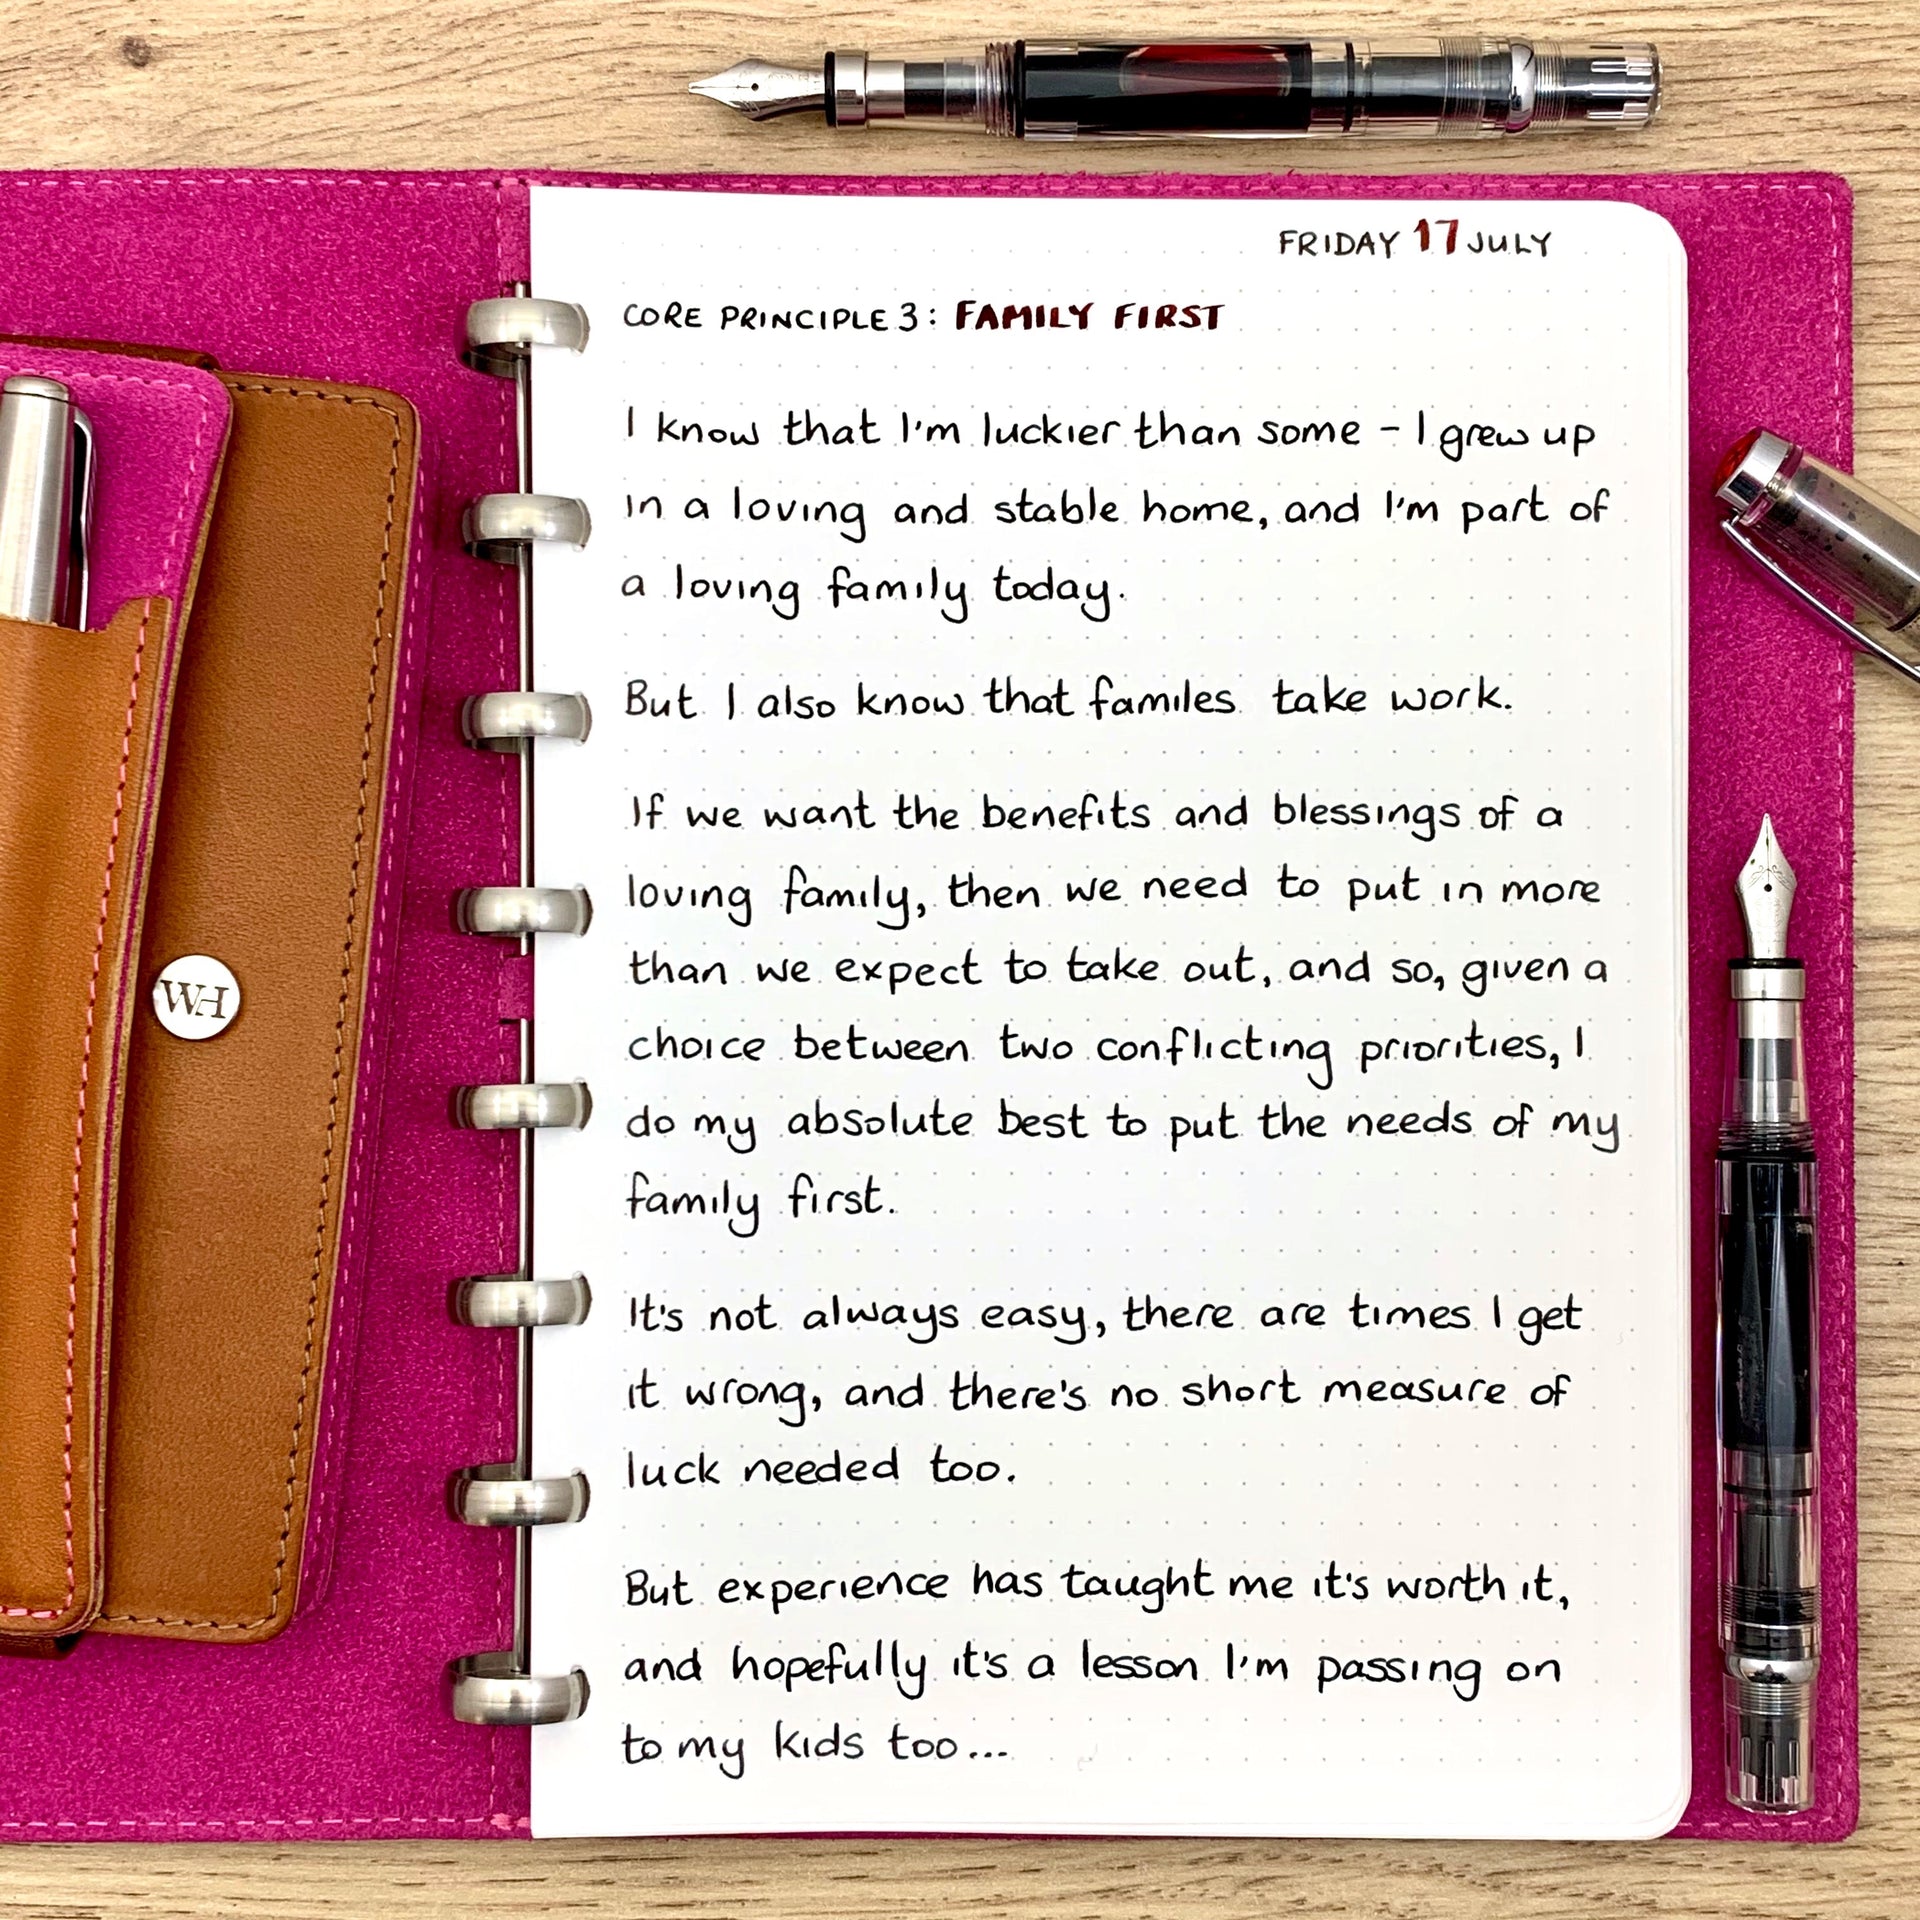 FRIDAY 17 JULY
CORE PRINCIPLE 3: FAMILY FIRST
I know that I'm luckier than some - I grew up
in a loving and stable home, and I'm part of
a loving family today.
But I also know that familes take work.
If we want the benefits and blessings of a
loving family, then we need to put in more
than we expect to take out, and so, given a
choice between two conflicting priorities, I
do my absolute best to put the needs of my
family first.
It's not always easy, there are times I get
it wrong, and there's no short measure of
luck needed too.
But experience has taught me it's worth it,
and hopefully it's a lesson I'm passing on
to my kids too...
WH